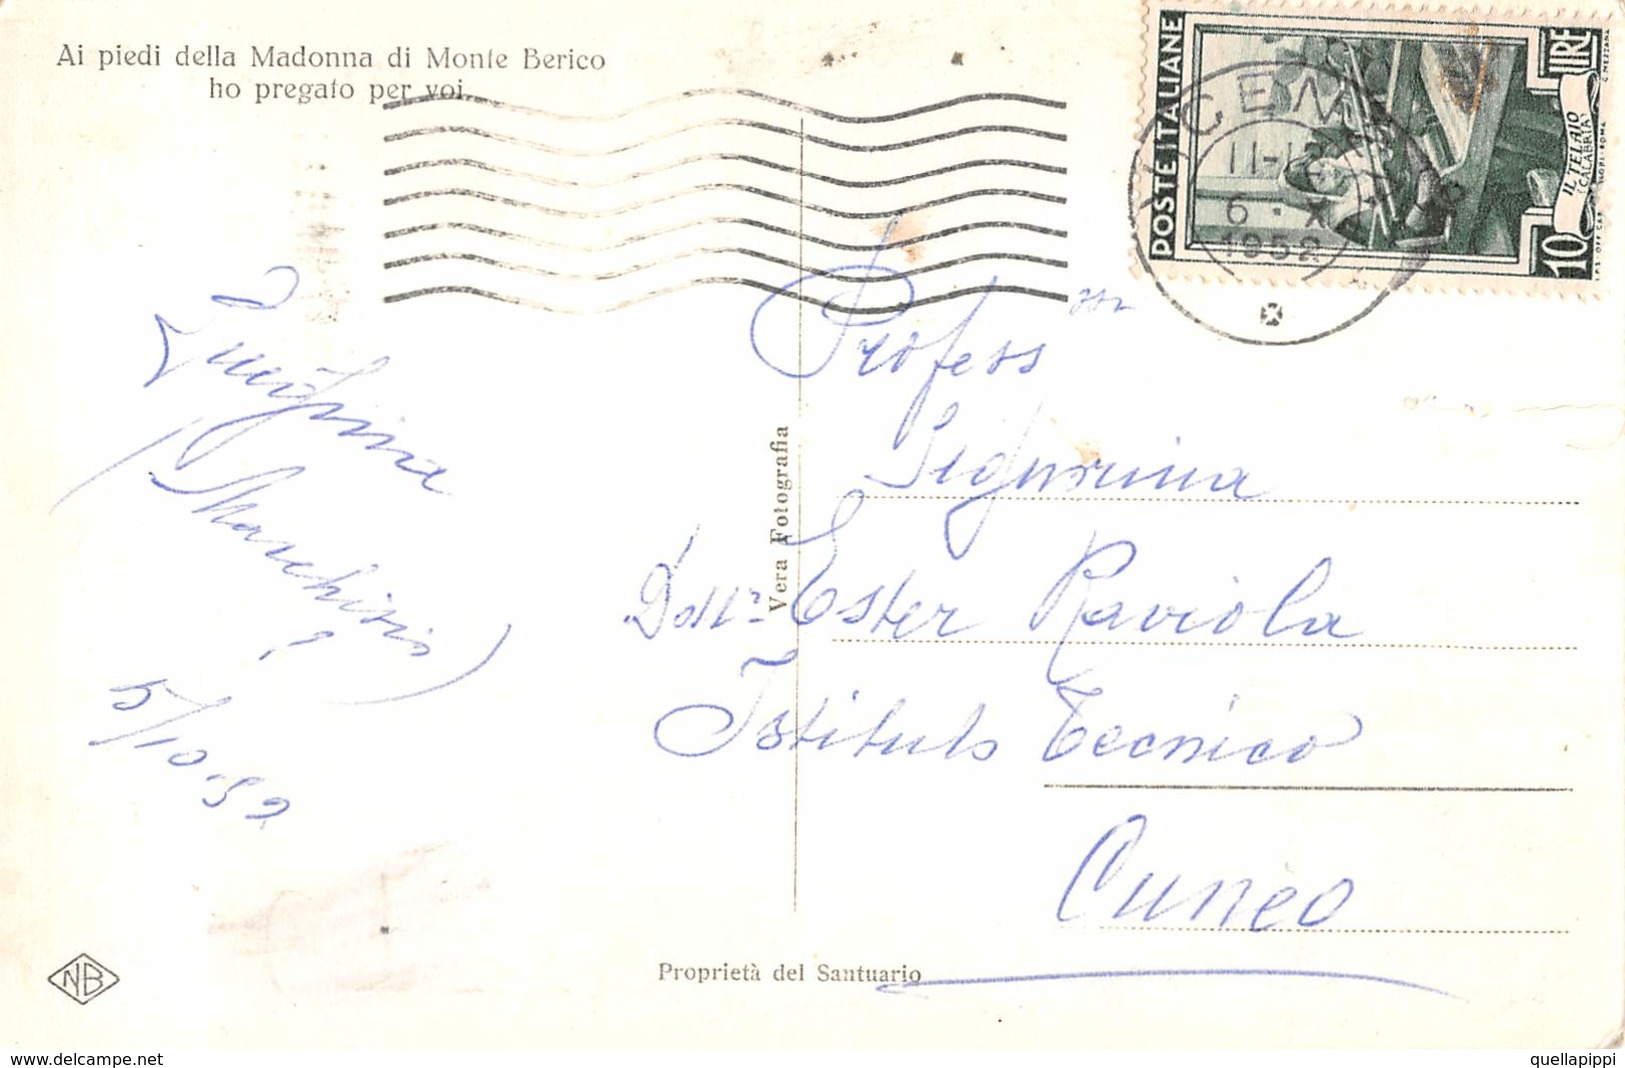 Ai piedi della Madonna di Monte Berico
ho pregato per voi.
POSTE ITALIANE
LIRE
10
IL TELAIO
(CALABRIA)
11-12
6 · X
1952
Luigina
Marchisio
5/10-52
Vera Fotografia
Profess
Signorina
Dott.ª Ester Raviola
Istituto Tecnico
Cuneo
Proprietà del Santuario
NB
www.delcampe.net
quellapippi